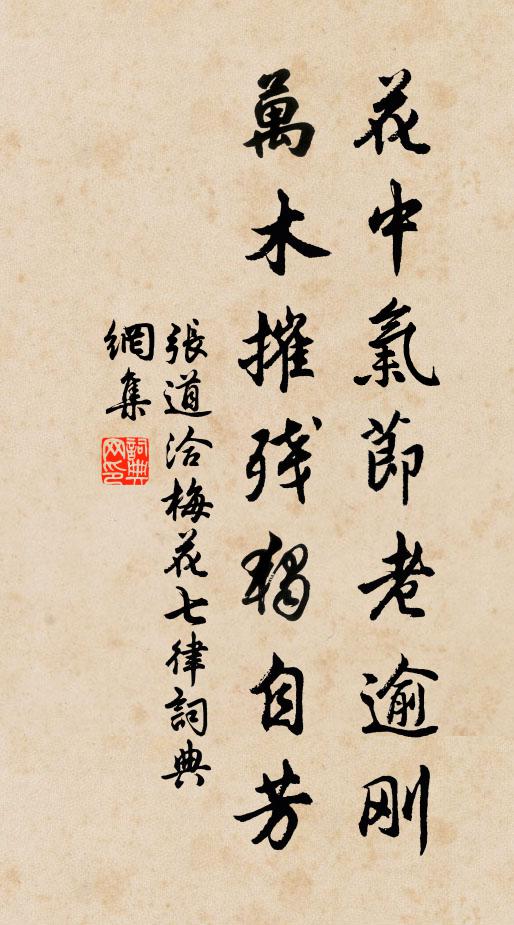 花中氣節老逾刚
萬木摧残獨自芳
張道洽梅花七律詞典
網集
詞典网印